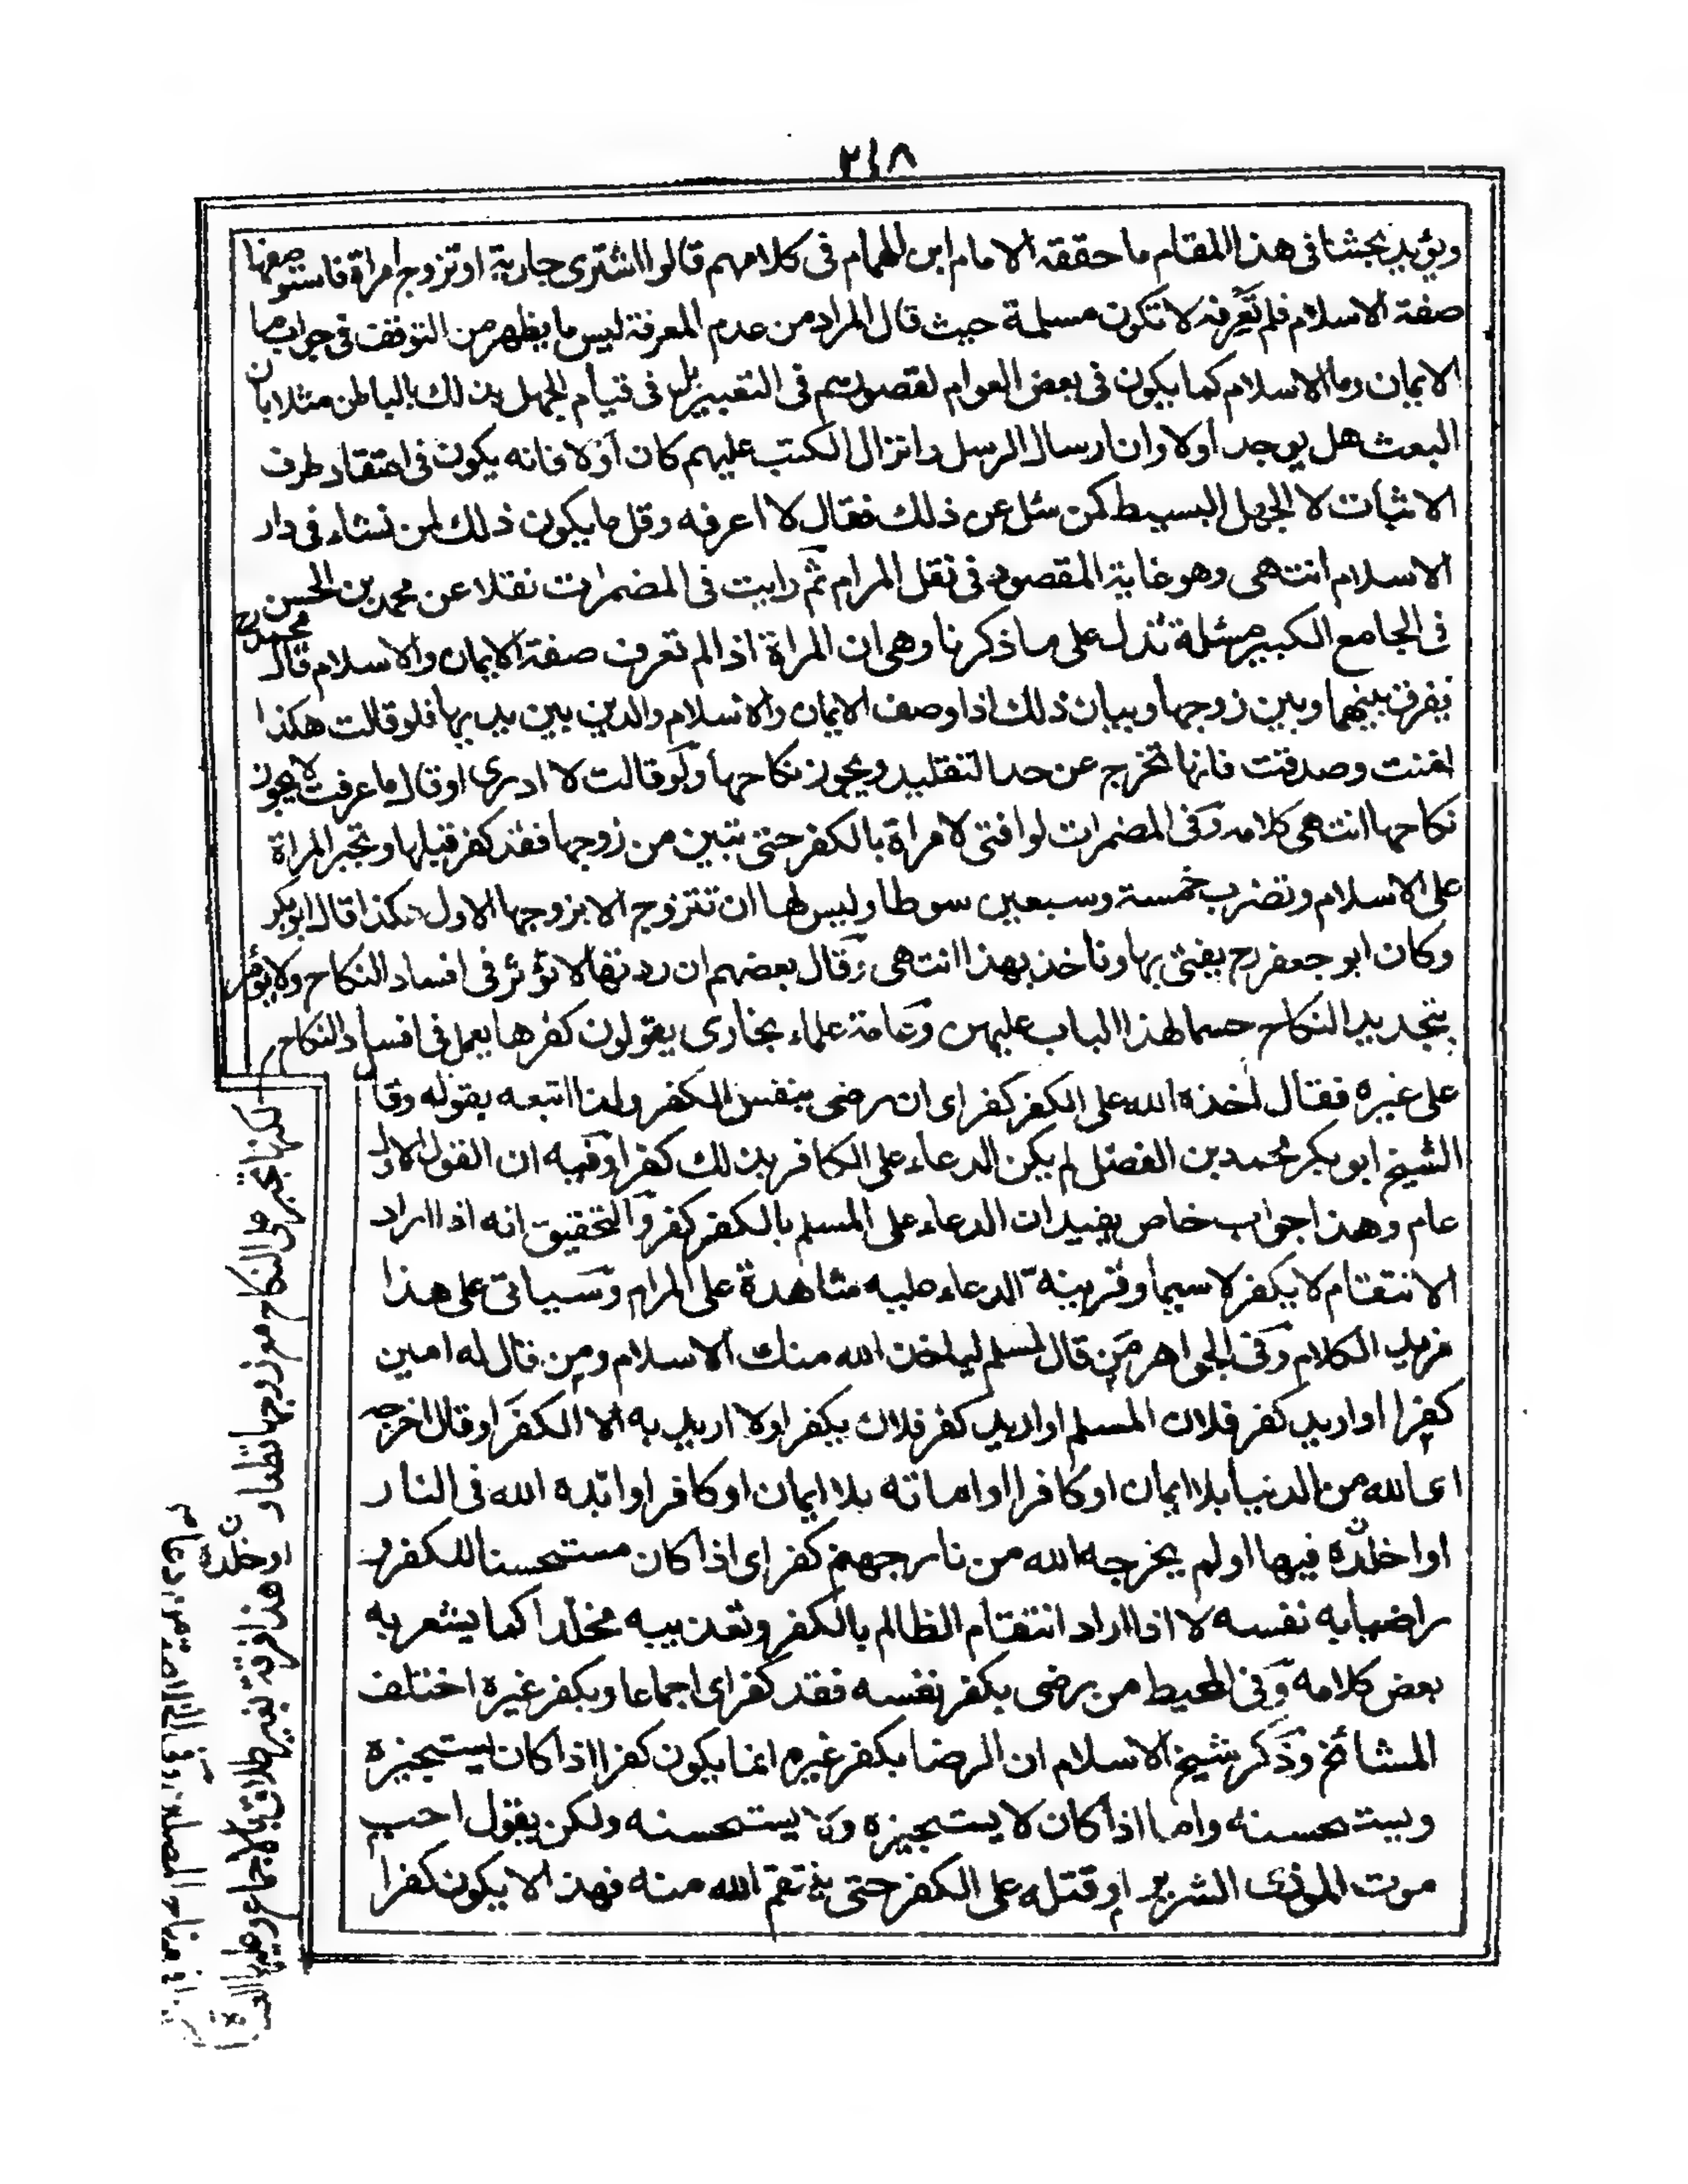 ٢١٨
ويؤيد بحثنا فى هذا المقام ما حققه الامام ابن الهمام فى كلامهم قالوا اشترى جارية او تزوج امراة فاستوصفها
صفة الاسلام فلم تعرفه لا تكون مسلمة حيث قال المراد من عدم المعرفة ليس ما يظهر من التوقف فى جواب ما
الايمان وما الاسلام كما يكون فى بعض العوام لقصورهم فى التعبير بل فى قيام الجهل بذلك بالباطن مثلا بان
البعث هل يوجد اولا وان ارسال الرسل وانزال الكتب عليهم كان اولا فانه يكون فى اعتقاد طرف
الاثبات لا الجهل البسيط كمن سئل عن ذلك فقال لا اعرفه وقل ما يكون ذلك لمن نشاء فى دار
الاسلام انتهى وهو غاية المقصود فى نقل المرام ثم رايت فى المضمرات نقلا عن محمد بن الحسن
فى الجامع الكبير مسئلة تدل على ما ذكرنا وهى ان المراة اذا لم تعرف صفة الايمان والاسلام قال محمد رح
يفرق بينهما وبين زوجها وبيان ذلك اذا وصف الايمان والاسلام والدين بين يديها فلو قالت هكذا
امنت وصدقت فانها تخرج عن حد التقليد ويجوز نكاحها ولو قالت لا ادرى او قال ما عرفت لا يجوز
نكاحها انتهى كلامه وفى المضمرات لو افتى لامراة بالكفر حتى تبين من زوجها فقد كفر قبلها وتجبر المراة
على الاسلام وتضرب خمسة وسبعين سوطا وليس لها ان تتزوج الا بزوجها الاول هكذا قال ابو بكر
وكان ابو جعفر رح يفتى بها وناخذ بهذا انتهى وقال بعضهم ان ردتها لا تؤثر فى افساد النكاح ولا يؤمر
بتجديد النكاح حسما لهذا الباب عليهن وعامة علماء بخارى يقولون كفرها يعمل فى افساد النكاح
على غيره فقال اخذه الله على الكفر كفر اى ان رضى بنفس الكفر ولذا اتبعه بقوله وقال
الشيخ ابو بكر محمد بن الفضل لم يكن الدعاء على الكافر بذلك كفرا وفيه ان القول الاول
عام وهذا جواب خاص يفيد ان الدعاء على المسلم بالكفر كفر والتحقيق انه اذا اراد
الانتقام لا يكفر لا سيما وقرينة الدعاء عليه مشاهدة على المرام وسياتى على هذا
مزيد الكلام وفى الجواهر من قال لمسلم لياخذ الله منك الاسلام ومن قال له امين
كفرا او اريد كفر فلان المسلم او اريد كفر فلان يكفر اولا اريد به الا الكفر او قال اخرجه
اى الله من الدنيا بلا ايمان او كافرا او اماته بلا ايمان او كافرا او ابده الله فى النار
او اخلده فيها او لم يخرجه الله من نار جهنم كفر اى اذا كان مستحسنا للكفر و
راضيا به نفسه لا اذا اراد انتقام الظالم بالكفر وتعذيبه مخلدا كما يشعر به
بعض كلامه وفى المحيط من رضى بكفر نفسه فقد كفر اى اجماعا وبكفر غيره اختلف
المشائخ وذكر شيخ الاسلام ان الرضا بكفر غيره انما يكون كفرا اذا كان يستجيزه
ويستحسنه واما اذا كان لا يستجيزه ولا يستحسنه ولكن يقول احب
موت الموذى الشرير او قتله على الكفر حتى ينتقم الله منه فهذا لا يكون كفرا
لكنها تجبر على النكاح مع زوجها
وهذا فرقة بغير طلاق بالاجماع